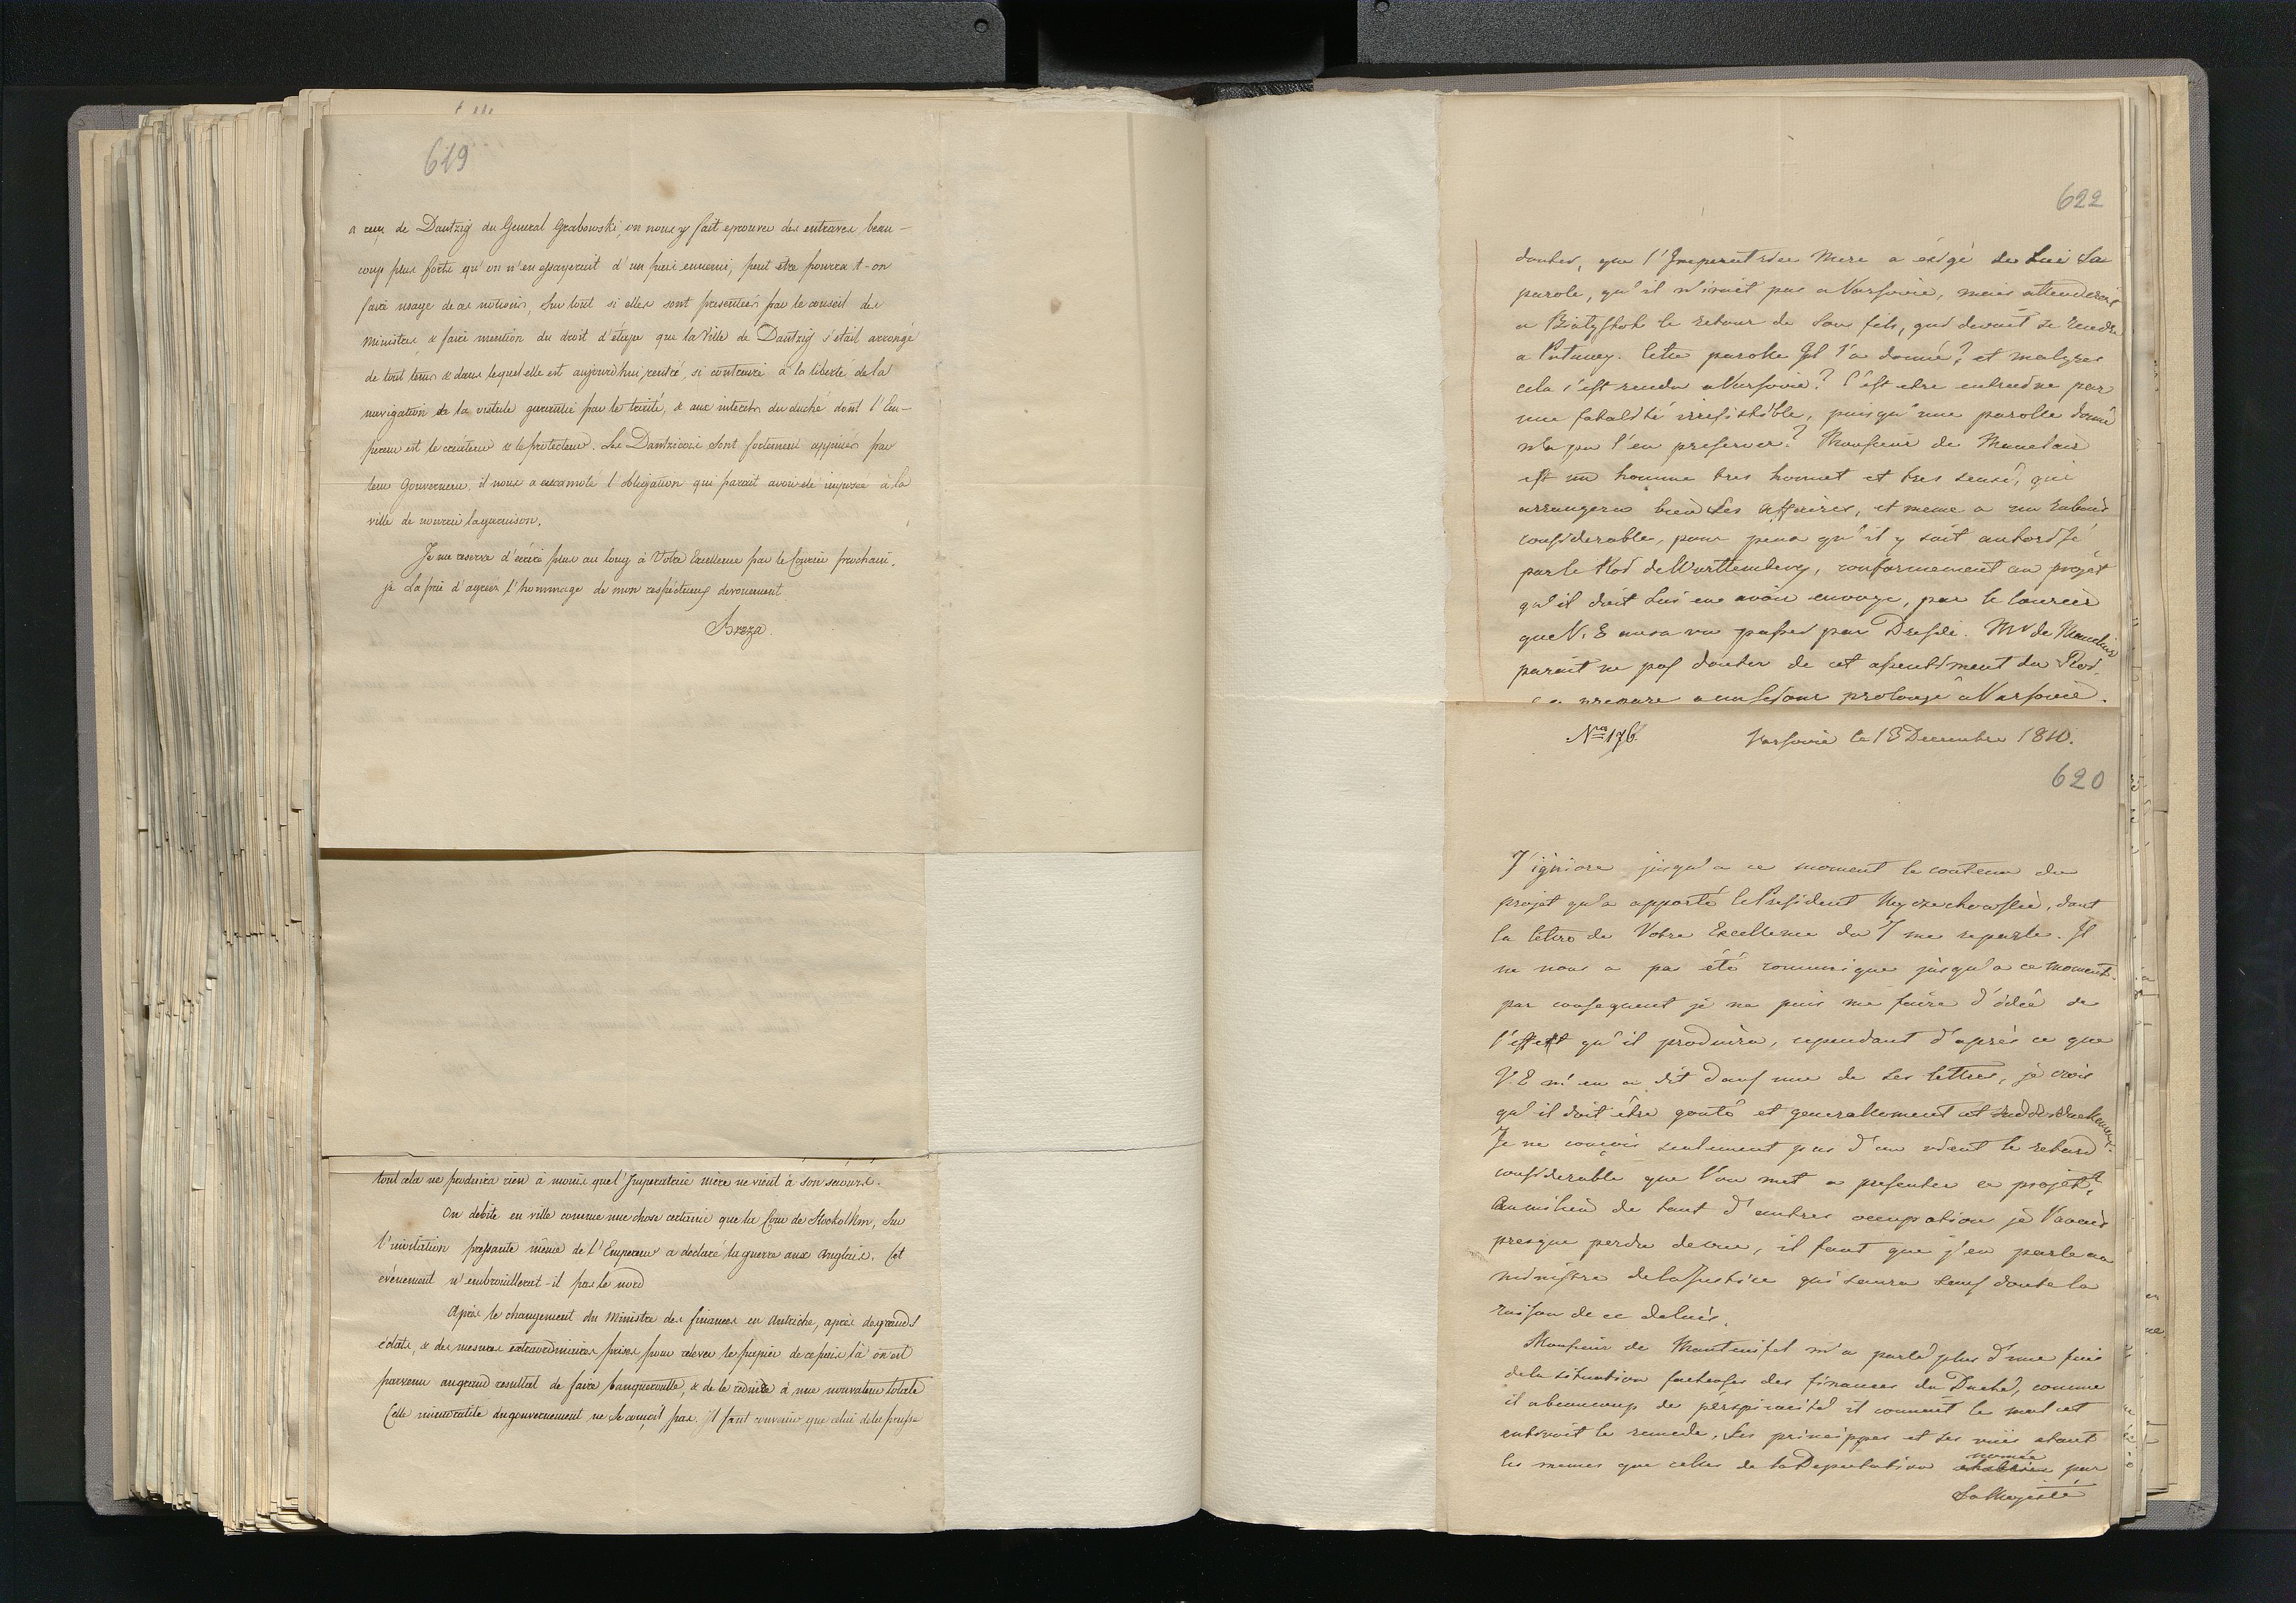 619
a ceux de Dantzig du General Grabowski, on nous y fait eprouver des entraves beau-
coup plus forte qu'on n'en essayeroit d'un pari ennemi, peut etre pourra t-on
faire usage de ces notions, Sur tout si elles sont presentées par le conseil des
Ministres, & faire mention du droit d'étape que la Ville de Dantzig s'était arrongé
de tout tems & dans lequel elle est aujourdhui rentré, si contraire à la liberté de la
navigation de la vistule garantie par le traité, & aux interets du duché dont l'Em-
pereur est le créateur & le protecteur. Les Dantzicois Sont fortement appuiés par
leur Gouverneur, il nous a escamoté l'obligation qui parait avoir été imposée à la
ville de nourrir la garnison.
Je me reserve d'écrire plus au long à Votre Excellence par le Courier prochain,
je La prie d'agréer l'hommage de mon respectueux devouement
Breza
tout cela ne produira rien à moins que l'Imperatrice mère ne vient à son secours.
On debite en ville comme une chose certaine que la Cour de Stockolhm, Sur
l'invitation pressante même de l'Empereur a déclaré la guerre aux Anglais. Cet
evénement n'embrouillerat-il pas le nord
Après le changement du Ministre des finances en Autriche, après de grands
éclats, & des mesures extraordinaires prises pour relever le papier de ce païs là on est
parvenu au grand resultat de faire banqueroutte, & de le reduire à une nonvaleur totale
Cette immoralité du gouvernement ne Se conçoit pas. Il faut convenir que celui de la prusse
622
doutes, que l'Imperatrice Mere a exigé de Lui Sa
parole, qu'il n'irait pas a Varsovie, mais attenderois
a Bialystok le retour de Son fils, qui devait se rendre
a Pulawy. Cette parolle Il l'a donné? et malgres
cela s'est rendu a Varsovie? C'est etre entrainé par
une fatalité irresistible, puisqu'une parolle donné
n'a pu l'en preserver? Monsieur de Mauclair
est un homme tres honnet et tres sensé, qui
arrangera bien Ses affaires, et meme a un rabais
considerable, pour peux qu'il y soit autorisé
par le Roi de Wurttemberg, conformement au projet
qu'il doit Lui en avoir envoyé, par le Courier
que V. E aura vu passer par Dresde. Mr de Mauclair
parait ne pas douter de cet assentiment du Roi.
prepare a un sejour prolongé a Varsovie.
Nro 176. Varsovie le 13 Decembre 1810.
620
J'ignore jusqu'a ce moment le contenu du
projet qu'a apporté le President Wyczechowskii, dont
la lettre de Votre Excellence du 7 me reparle. Il
ne nous a pas été comunique jusqu'a ce moment.
par consequent je ne puis me faire d'idée de
l'effet qu'il produira, cependant d'aprés ce que
V. E m'en a dit dans une de Ses lettres, je crois
qu'il doit être gouté et generallement et
Je ne conçois seulement pas d'ou vient le retard
considerable que l'on met a presenter ce projet,
au milieu de tant d'autres occupation je l'avois
presque perdu de vue, il faut que j'en parle au
ministre de la Justice qui saura sans doute la
raison de ce delais.
Monsieur de Manteufel m'a parlé plus d'une fois
de la situation facheuses des finances du Duché, comme
il a beaucoup de pérspicacité il connait le mal et
entrevoit le remede, Ses princippes et ses vues etant
les memes que celles de la Deputation nomée par
Sa Majesté